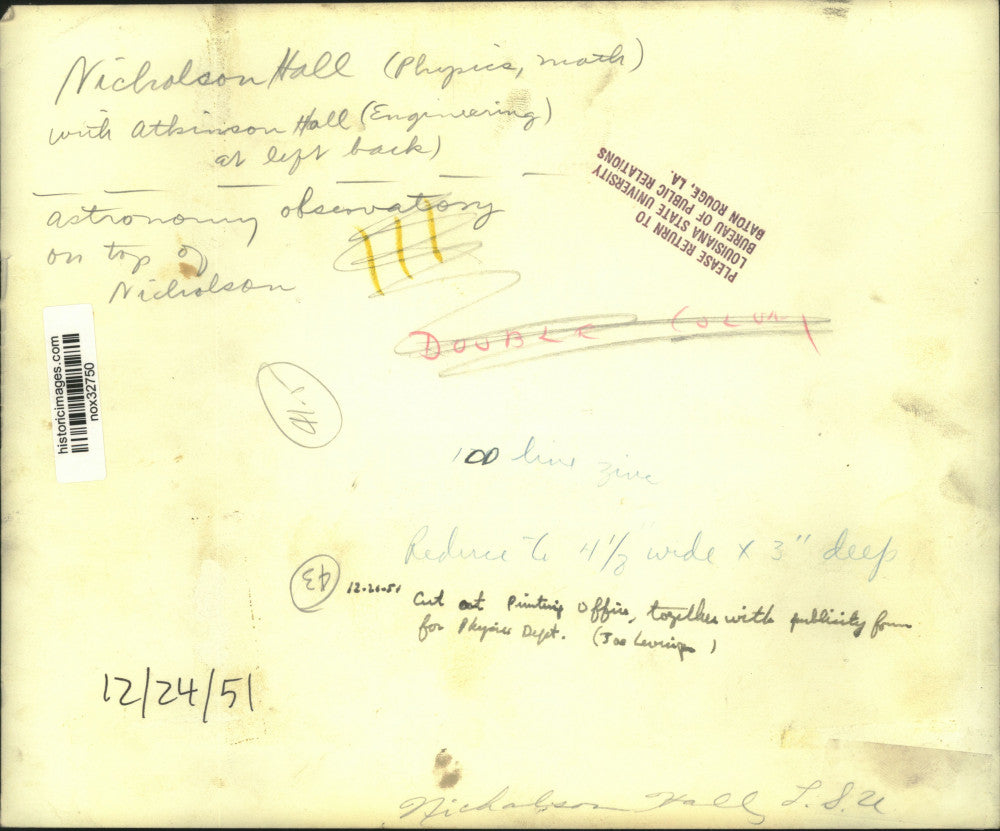 Nicholson Hall (Physics, math)
with Atkinson Hall (Engineering)
at left back)
astronomy observatory
on top of
Nicholson
PLEASE RETURN TO
LOUISIANA STATE UNIVERSITY
BUREAU OF PUBLIC RELATIONS
BATON ROUGE, LA.
DOUBLE COLUMN
historicimages.com
nox32750
100 line zinc
Reduce to 4 1/2" wide x 3" deep
43
12-21-51
Cut at Printing Office, together with publicity from
for Physics Dept. (Joe Levrings)
12/24/51
Nicholson Hall L.S.U